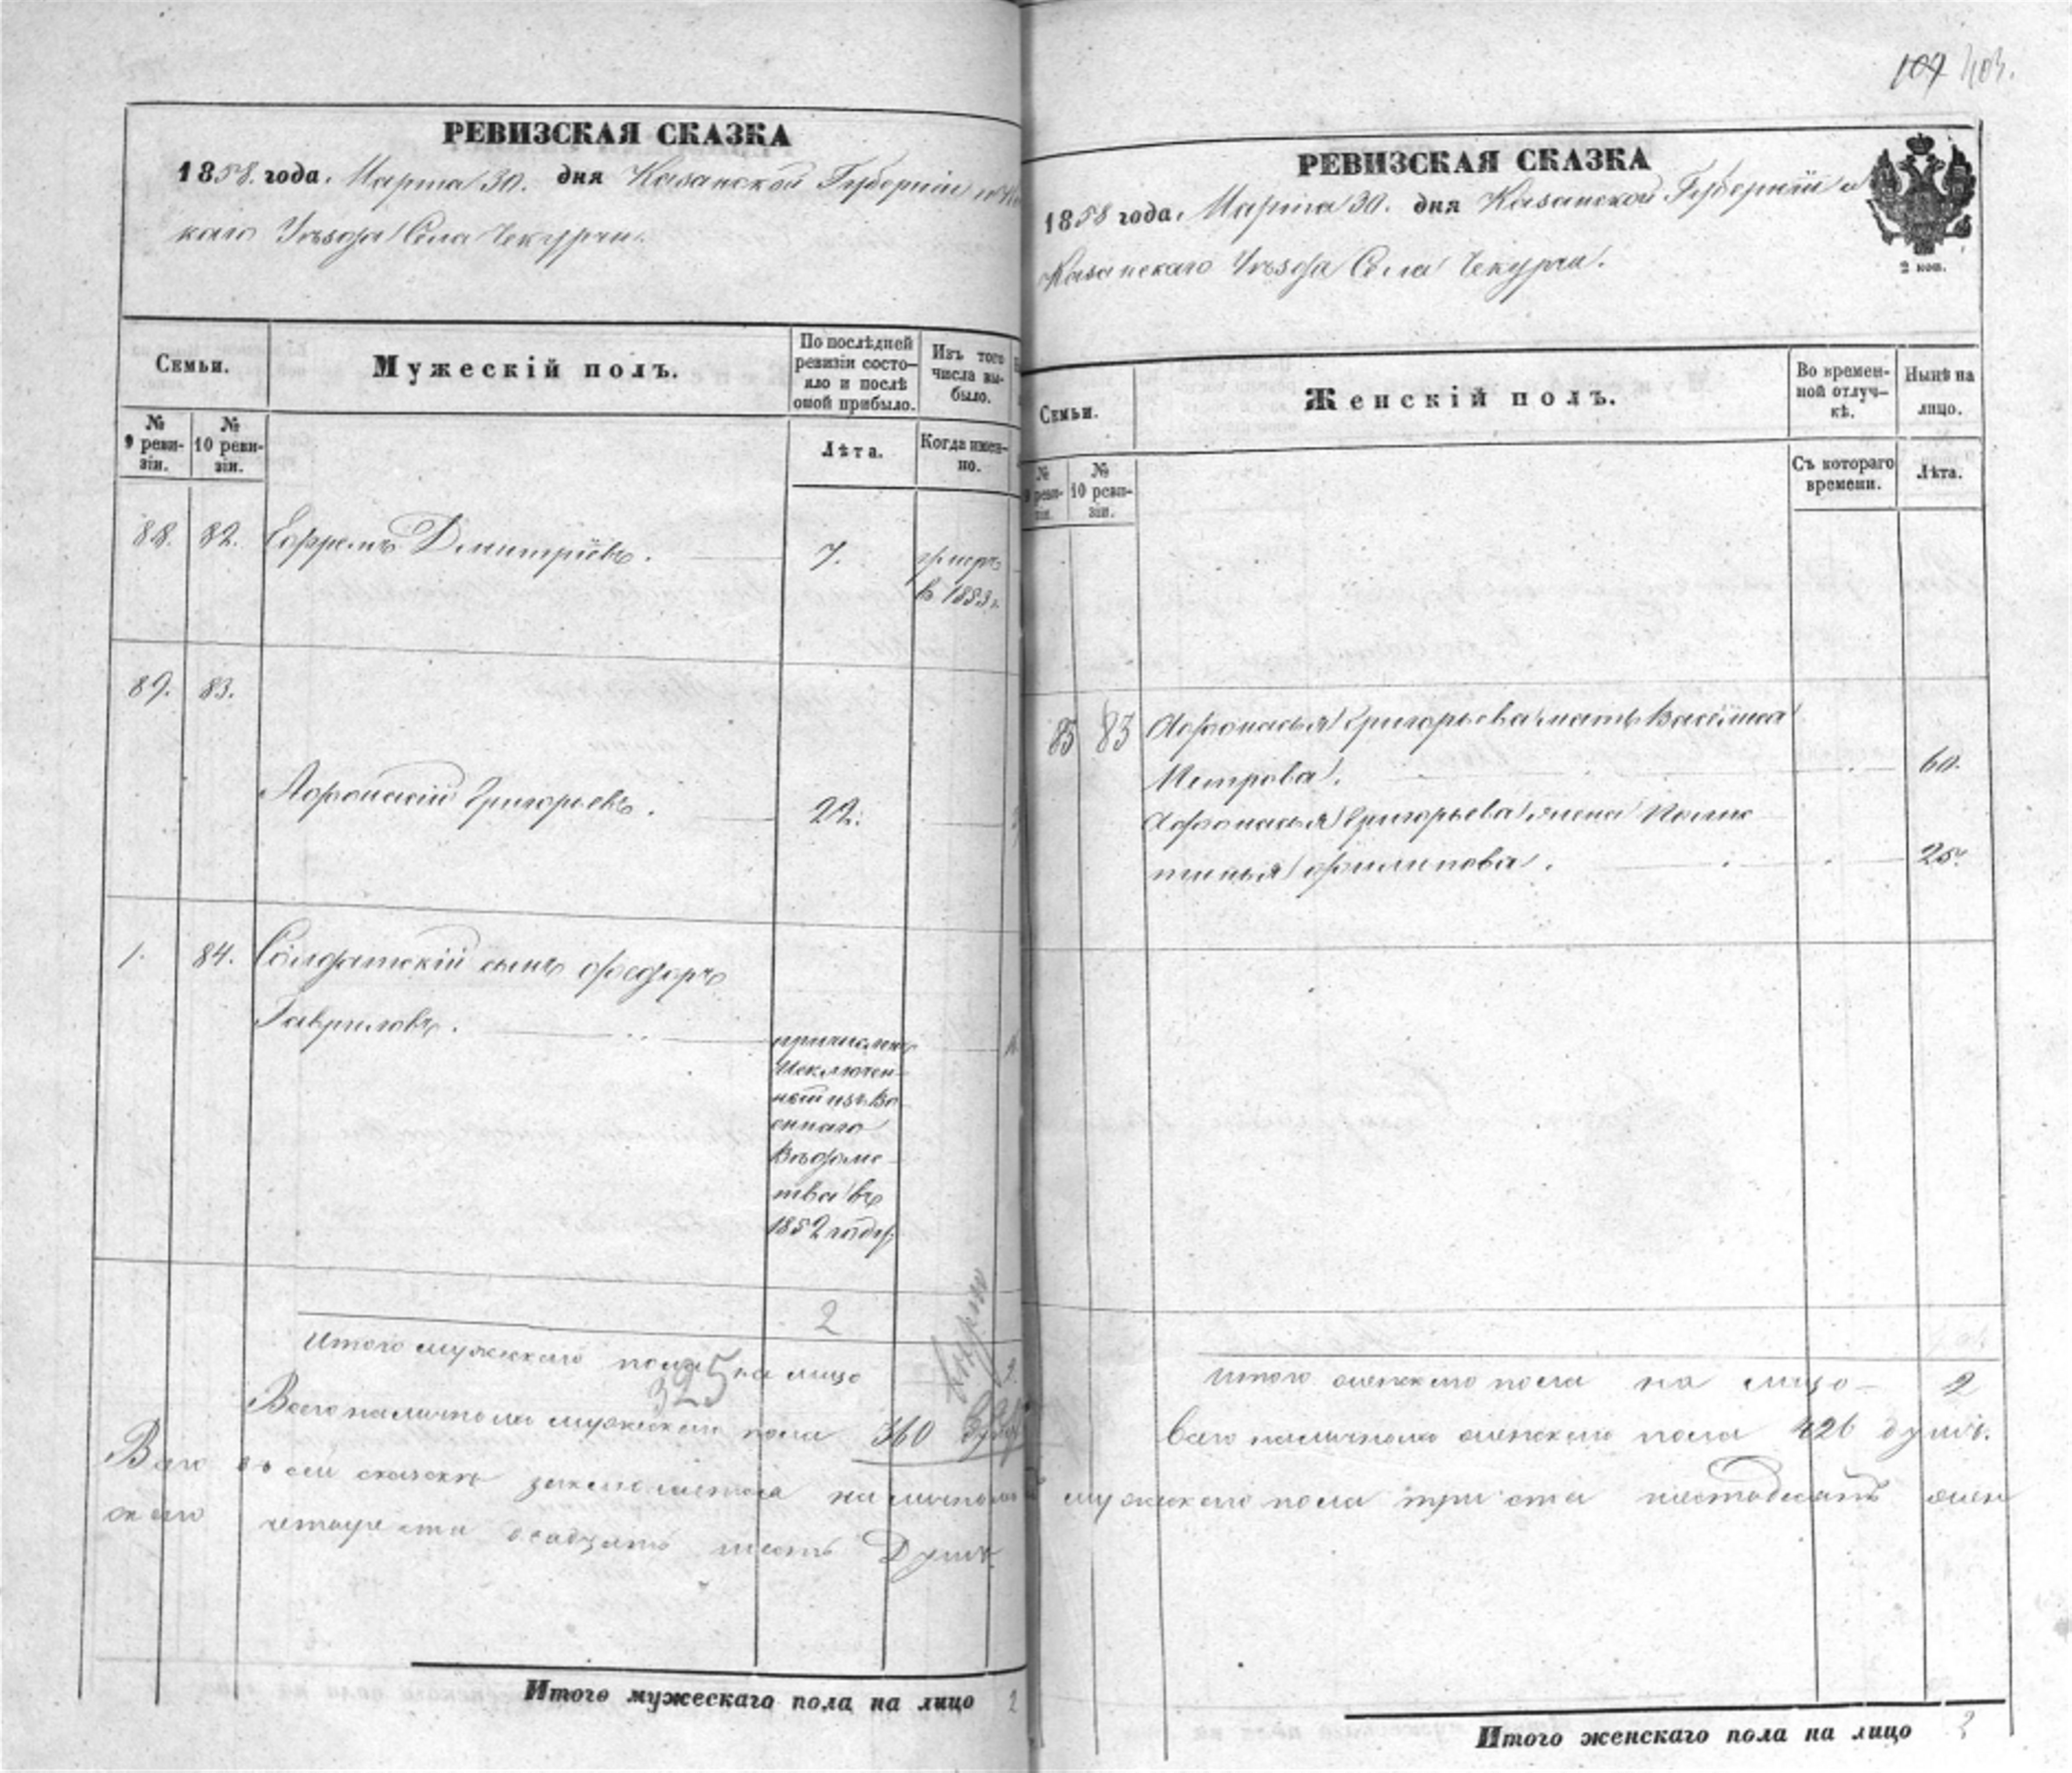 РЕВИЗСКАЯ СКАЗКА
1858. года. Марта 30. дня Казанской Губерніи и
каго Уѣзда Села Чекурчи.
Семьи.
Мужескій полъ.
По послѣдней ревизіи состо-
яло и послѣ
оной прибыло.
Изъ того
числа вы-
было.
№
9 реви-
зіи.
№
10 реви-
зіи.
Лѣта.
Когда имен-
но.
88. 82. Ефремъ Дмитріевъ. 7.
в 1853 г.
89. 83.
Афонасій Григорьевъ. 22.
1. 84. Солдатскій сынъ Федоръ
Гавриловъ.
причисленъ
Исключен-
ный изъ Во-
еннаго
Вѣдомс-
тва въ
1852 году.
2
Итого мужскаго пола на лицо 2
325
Всего налично мужскаго пола 360
Всего в сей сказке заключается налично
скаго четыреста двадцать шесть Душъ
Итого мужескаго пола на лицо 2
107 403.
РЕВИЗСКАЯ СКАЗКА
1858 года. Марта 30. дня Казанской Губерніи и
Казанскаго Уѣзда Села Чекурчи.
2 коп.
Семьи.
Женскій полъ.
Во времен-
ной отлуч-
кѣ.
Нынѣ на
лицо.
№
9 реви-
зіи.
№
10 реви-
зіи.
Съ котораго
времени.
Лѣта.
85 83 Афонасья Григорьева мать
Петрова. 60.
Афонасья Григорьева жена
Филипова. 25.
Итого женскаго пола на лицо 2
Всего налично женскаго пола 426 душъ.
мужскаго пола триста шестьдесятъ жен
Итого женскаго пола на лицо 2